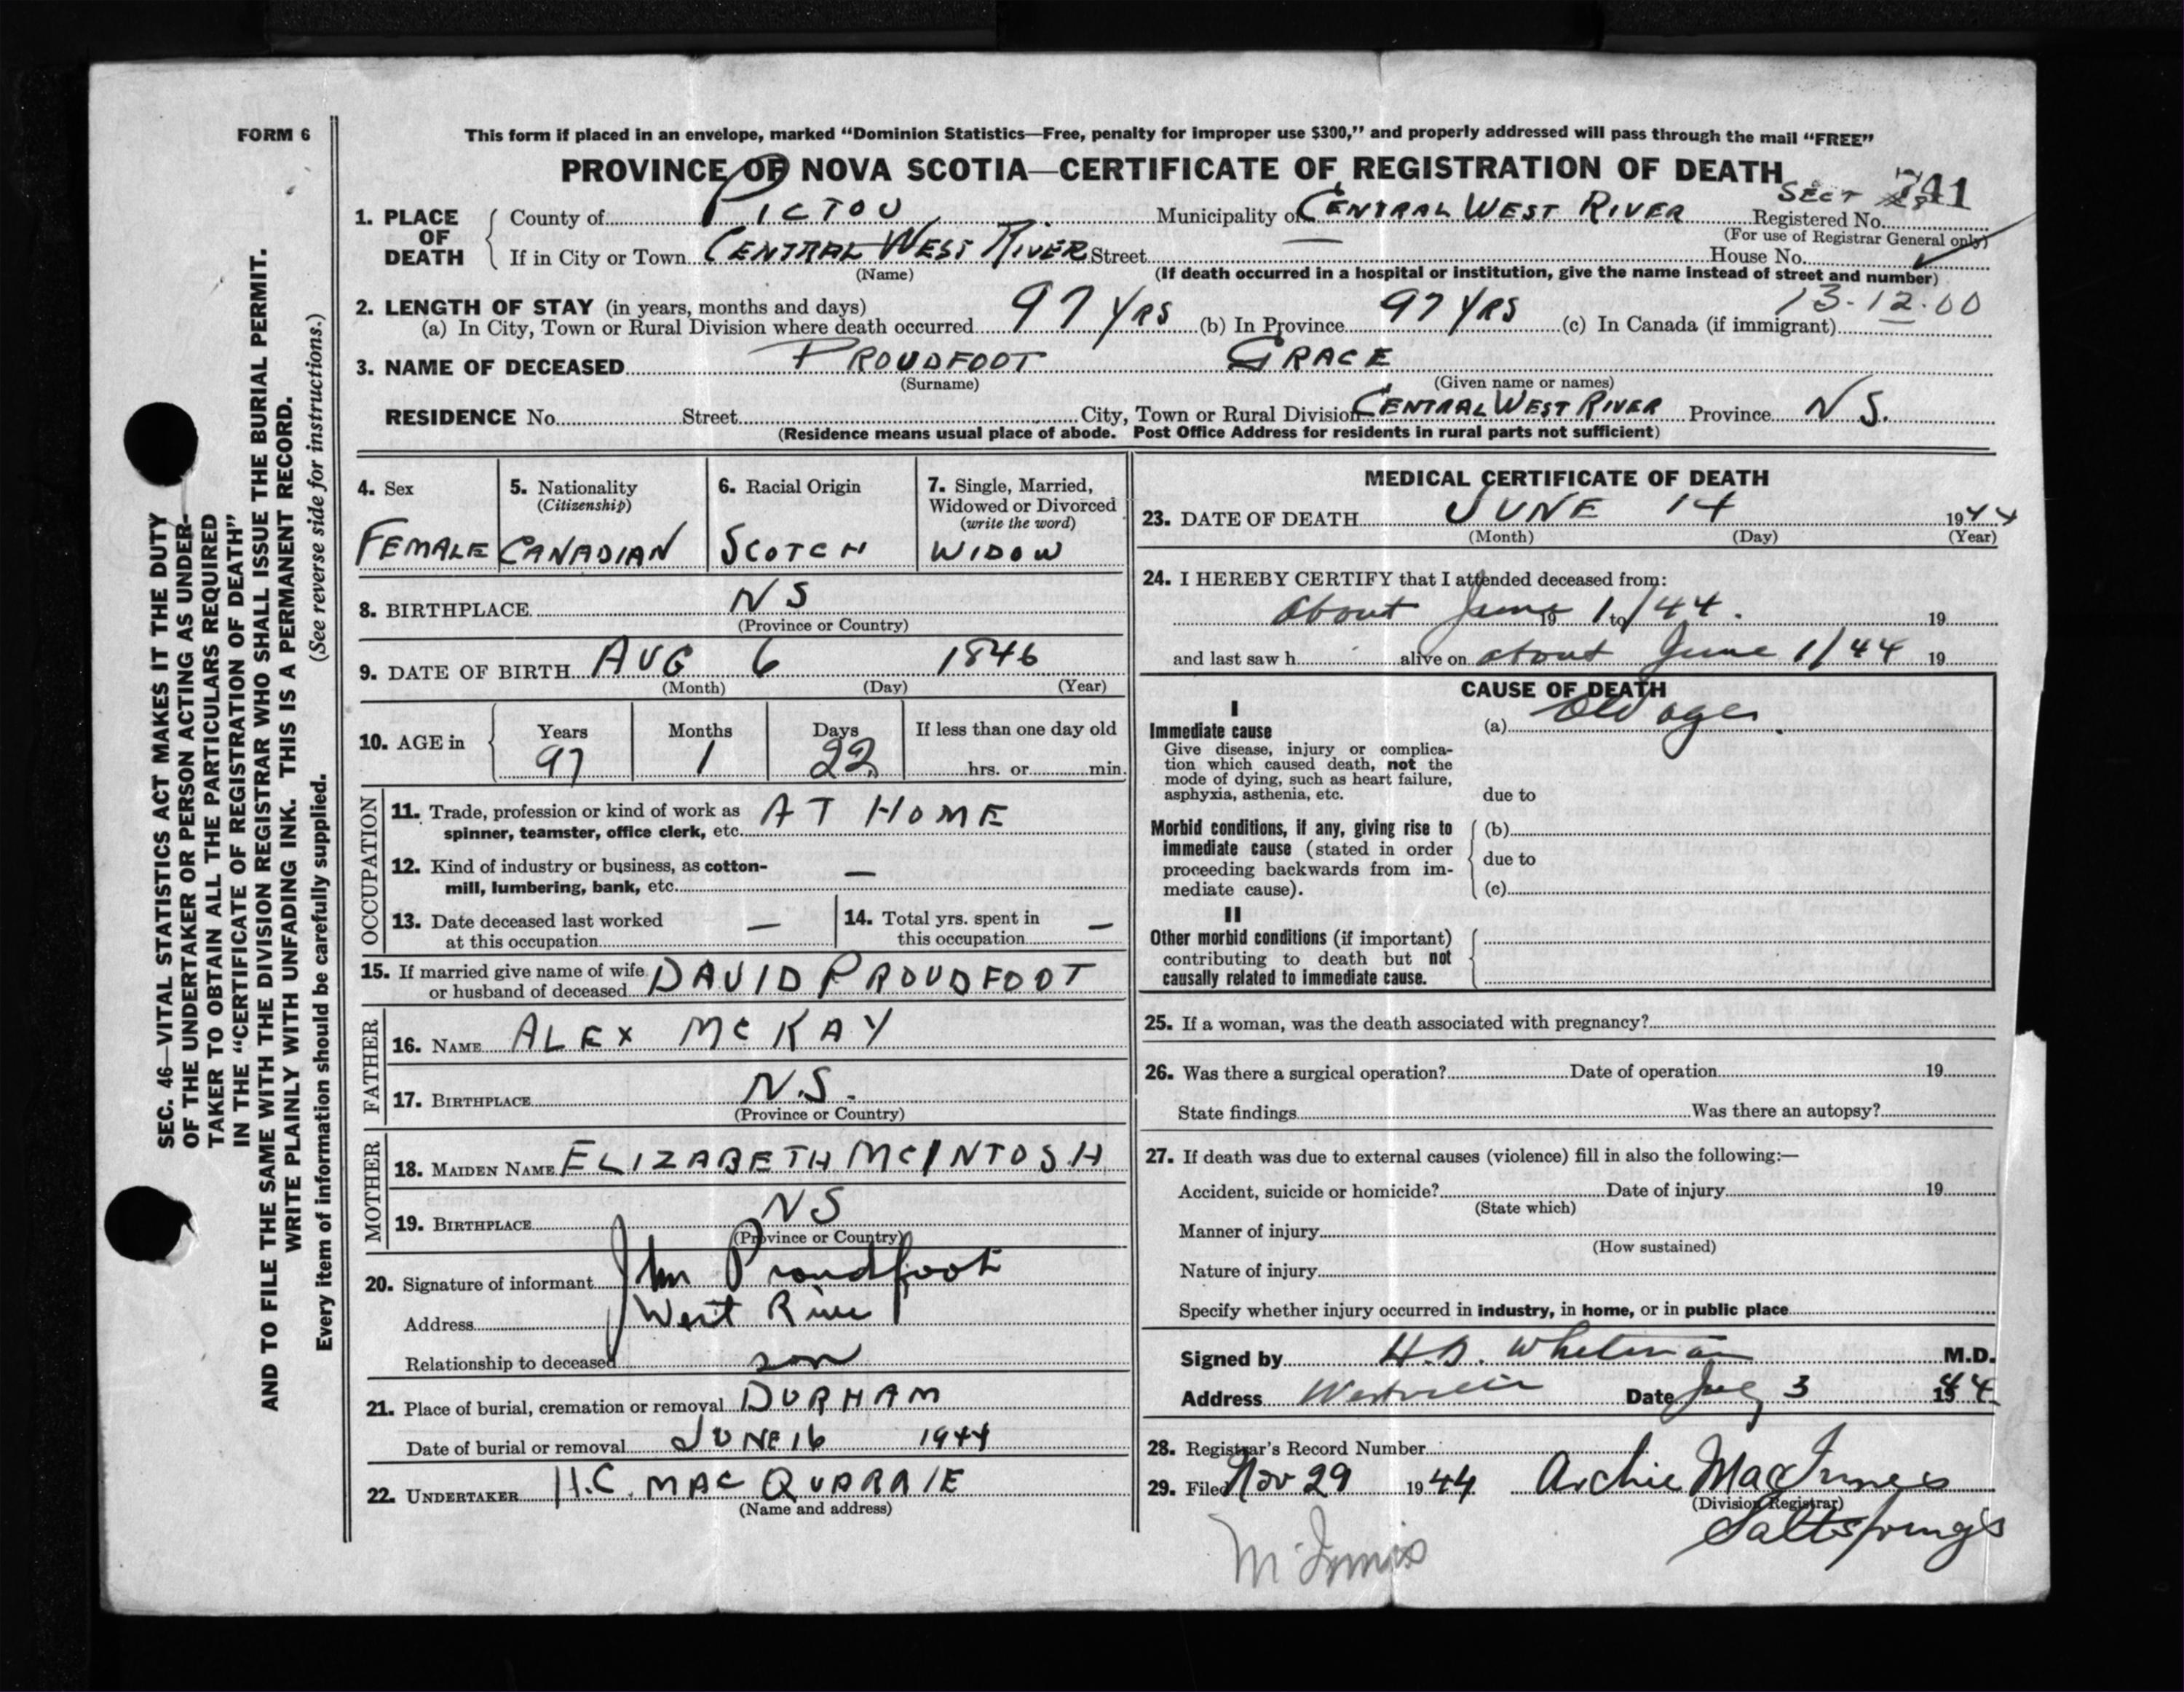 FORM 6
This form if placed in an envelope, marked “Dominion Statistics—Free, penalty for improper use $300,” and properly addressed will pass through the mail “FREE”
PROVINCE OF NOVA SCOTIA—CERTIFICATE OF REGISTRATION OF DEATH
SECT 741
1. PLACE OF DEATH
County of PICTOU Municipality of CENTRAL WEST RIVER Registered No.
(For use of Registrar General only)
If in City or Town CENTRAL WEST RIVER Street — House No.
(Name) (If death occurred in a hospital or institution, give the name instead of street and number)
2. LENGTH OF STAY (in years, months and days) 13-12.00
(a) In City, Town or Rural Division where death occurred 97 YRS (b) In Province 97 YRS (c) In Canada (if immigrant)
3. NAME OF DECEASED PROUDFOOT GRACE
(Surname) (Given name or names)
RESIDENCE No. Street City, Town or Rural Division CENTRAL WEST RIVER Province N S.
(Residence means usual place of abode. Post Office Address for residents in rural parts not sufficient)
4. Sex
FEMALE
5. Nationality
(Citizenship)
CANADIAN
6. Racial Origin
SCOTCH
7. Single, Married,
Widowed or Divorced
(write the word)
WIDOW
8. BIRTHPLACE NS
(Province or Country)
9. DATE OF BIRTH AUG 6 1846
(Month) (Day) (Year)
10. AGE in
Years Months Days If less than one day old
97 1 22 hrs. or min.
OCCUPATION
11. Trade, profession or kind of work as
spinner, teamster, office clerk, etc. AT HOME
12. Kind of industry or business, as cotton-
mill, lumbering, bank, etc. —
13. Date deceased last worked
at this occupation —
14. Total yrs. spent in
this occupation —
15. If married give name of wife
or husband of deceased DAVID PROUDFOOT
FATHER
16. NAME ALEX MCKAY
17. BIRTHPLACE N.S.
(Province or Country)
MOTHER
18. MAIDEN NAME ELIZABETH MCINTOSH
19. BIRTHPLACE NS
(Province or Country)
20. Signature of informant John Proudfoot
Address West River
Relationship to deceased son
21. Place of burial, cremation or removal DURHAM
Date of burial or removal JUNE 16 1944
22. UNDERTAKER H.C. MACQUARRIE
(Name and address)
MEDICAL CERTIFICATE OF DEATH
23. DATE OF DEATH JUNE 14 1944
(Month) (Day) (Year)
24. I HEREBY CERTIFY that I attended deceased from:
about June 19 1 to /44. 19
and last saw h alive on about June 1/44 19
CAUSE OF DEATH
I
Immediate cause
Give disease, injury or complica-
tion which caused death, not the
mode of dying, such as heart failure,
asphyxia, asthenia, etc.
(a) Old age.
due to
Morbid conditions, if any, giving rise to
immediate cause (stated in order
proceeding backwards from im-
mediate cause).
(b)
due to
(c)
II
Other morbid conditions (if important)
contributing to death but not
causally related to immediate cause.
25. If a woman, was the death associated with pregnancy?
26. Was there a surgical operation? Date of operation 19
State findings Was there an autopsy?
27. If death was due to external causes (violence) fill in also the following:—
Accident, suicide or homicide? Date of injury 19
(State which)
Manner of injury
(How sustained)
Nature of injury
Specify whether injury occurred in industry, in home, or in public place
Signed by Whitman M.D.
Address Westville Date July 3 1944
28. Registrar's Record Number
29. Filed Nov 29 1944 Archie MacInnes
(Division Registrar)
Saltsprings
McInnis
SEC. 46—VITAL STATISTICS ACT MAKES IT THE DUTY
OF THE UNDERTAKER OR PERSON ACTING AS UNDER-
TAKER TO OBTAIN ALL THE PARTICULARS REQUIRED
IN THE “CERTIFICATE OF REGISTRATION OF DEATH”
AND TO FILE THE SAME WITH THE DIVISION REGISTRAR WHO SHALL ISSUE THE BURIAL PERMIT.
WRITE PLAINLY WITH UNFADING INK. THIS IS A PERMANENT RECORD.
Every item of information should be carefully supplied. (See reverse side for instructions.)